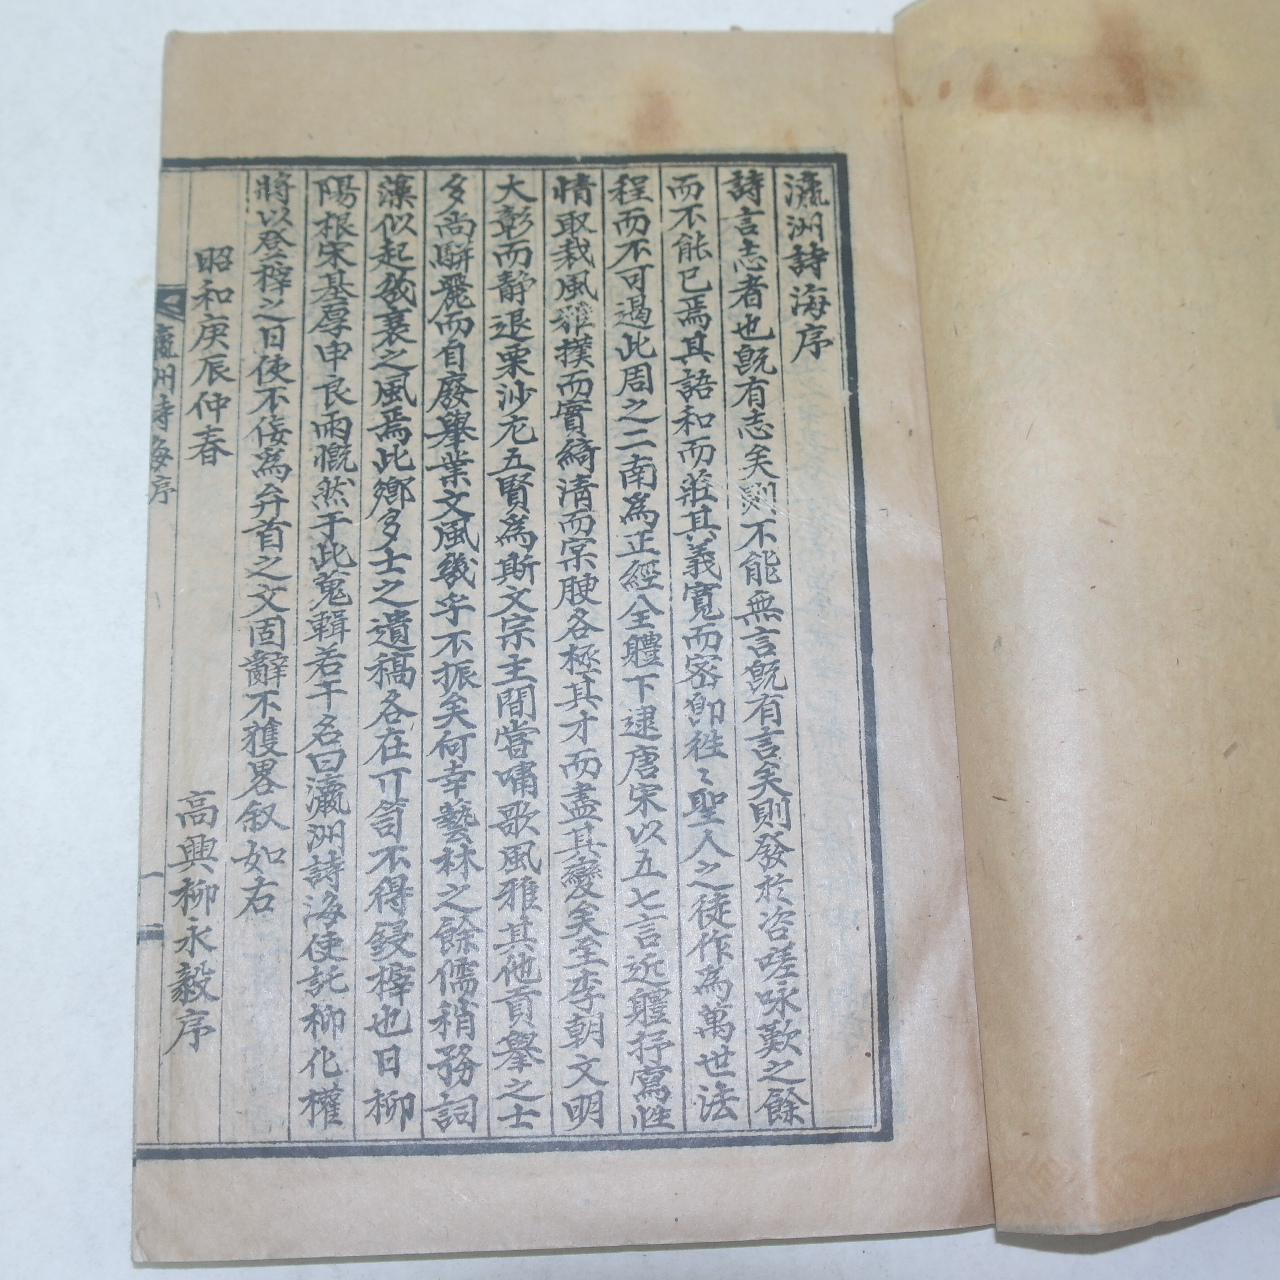 瀛洲詩海序
詩言志者也旣有志矣則不能無言旣有言矣則發於咨嗟咏歎之餘
而不能已焉其語和而莊其義寬而密卽徃〻聖人之徒作爲萬世法
程而不可遏此周之二南爲正經全體下逮唐宋以五七言近軆抒寫性
情取裁風雅撲而實綺淸而宋腴各極其才而盡其變矣至李朝文明
大彰而靜退栗沙尤五賢爲斯文宗主間嘗嘯歌風雅其他貢擧之士
多尙騈麗而自廢擧業文風幾乎不振矣何幸藝林之餘儒稍務詞
藻似起衰之風焉此鄕多士之遺稿各在巾笥不得鋟梓也日柳
陽根宋基厚申艮雨慨然于此蒐輯若干名曰瀛洲詩海使託柳化權
將以登梓之日使不佞爲弁首之文固辭不獲畧叙如右
昭和庚辰仲春
高興柳永毅序
瀛洲詩海序
一